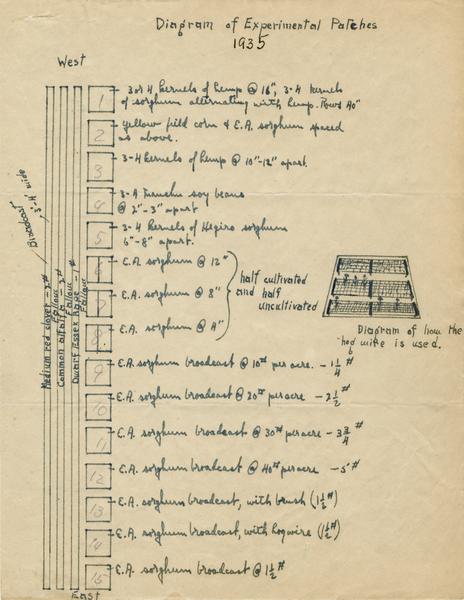 Diagram of Experimental Patches
1935
West
1 3 or 4 kernels of hemp @ 16", 3-4 kernels
of sorghum alternating with hemp. Rows 40"
2 yellow field corn & E.A. sorghum spaced
as above.
3 3-4 kernels of hemp @ 10"-12" apart.
4 3-4 soy beans
@ 2"-3" apart
5 3-4 kernels of Hegira sorghum
6"-8" apart.
6 E.A. sorghum @ 12"
7 E.A. sorghum @ 8"
8 E.A. sorghum @ 4"
half cultivated
and half
uncultivated
9 E.A. sorghum broadcast @ 10# per acre. - 1 1/4 #
10 E.A. sorghum broadcast @ 20# per acre - 2 1/2 #
11 E.A. sorghum broadcast @ 30# per acre - 3 3/4 #
12 E.A. sorghum broadcast @ 40# per acre - 5 #
13 E.A. sorghum broadcast, with brush (1 1/2 #)
14 E.A. sorghum broadcast, with hogwire (1 1/2 #)
15 E.A. sorghum broadcast @ 1 1/2 #
East
Broadcast
3'-4' wide
Medium red clover
Fallow
Common alfalfa
Fallow
Dwarf Essex Rape - 1#
Fallow
Diagram of how the
hog wire is used.